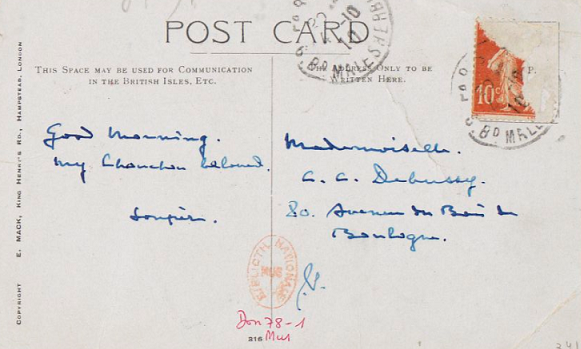 POST CARD
THIS SPACE MAY BE USED FOR COMMUNICATION
IN THE BRITISH ISLES, ETC.
THE ADDRESS ONLY TO BE
WRITTEN HERE.
COPYRIGHT E. MACK, KING HENRY'S RD., HAMPSTEAD, LONDON
Good Morning.
My Chouchou beloved.
Mademoiselle.
C. C. Debussy.
80. Avenue du Bois de
Boulogne.
10c
Bd MALESHERB
Bd MALE
BIBLIOTH NATIONALE
MUS
Don 78-1
Mus
216
241